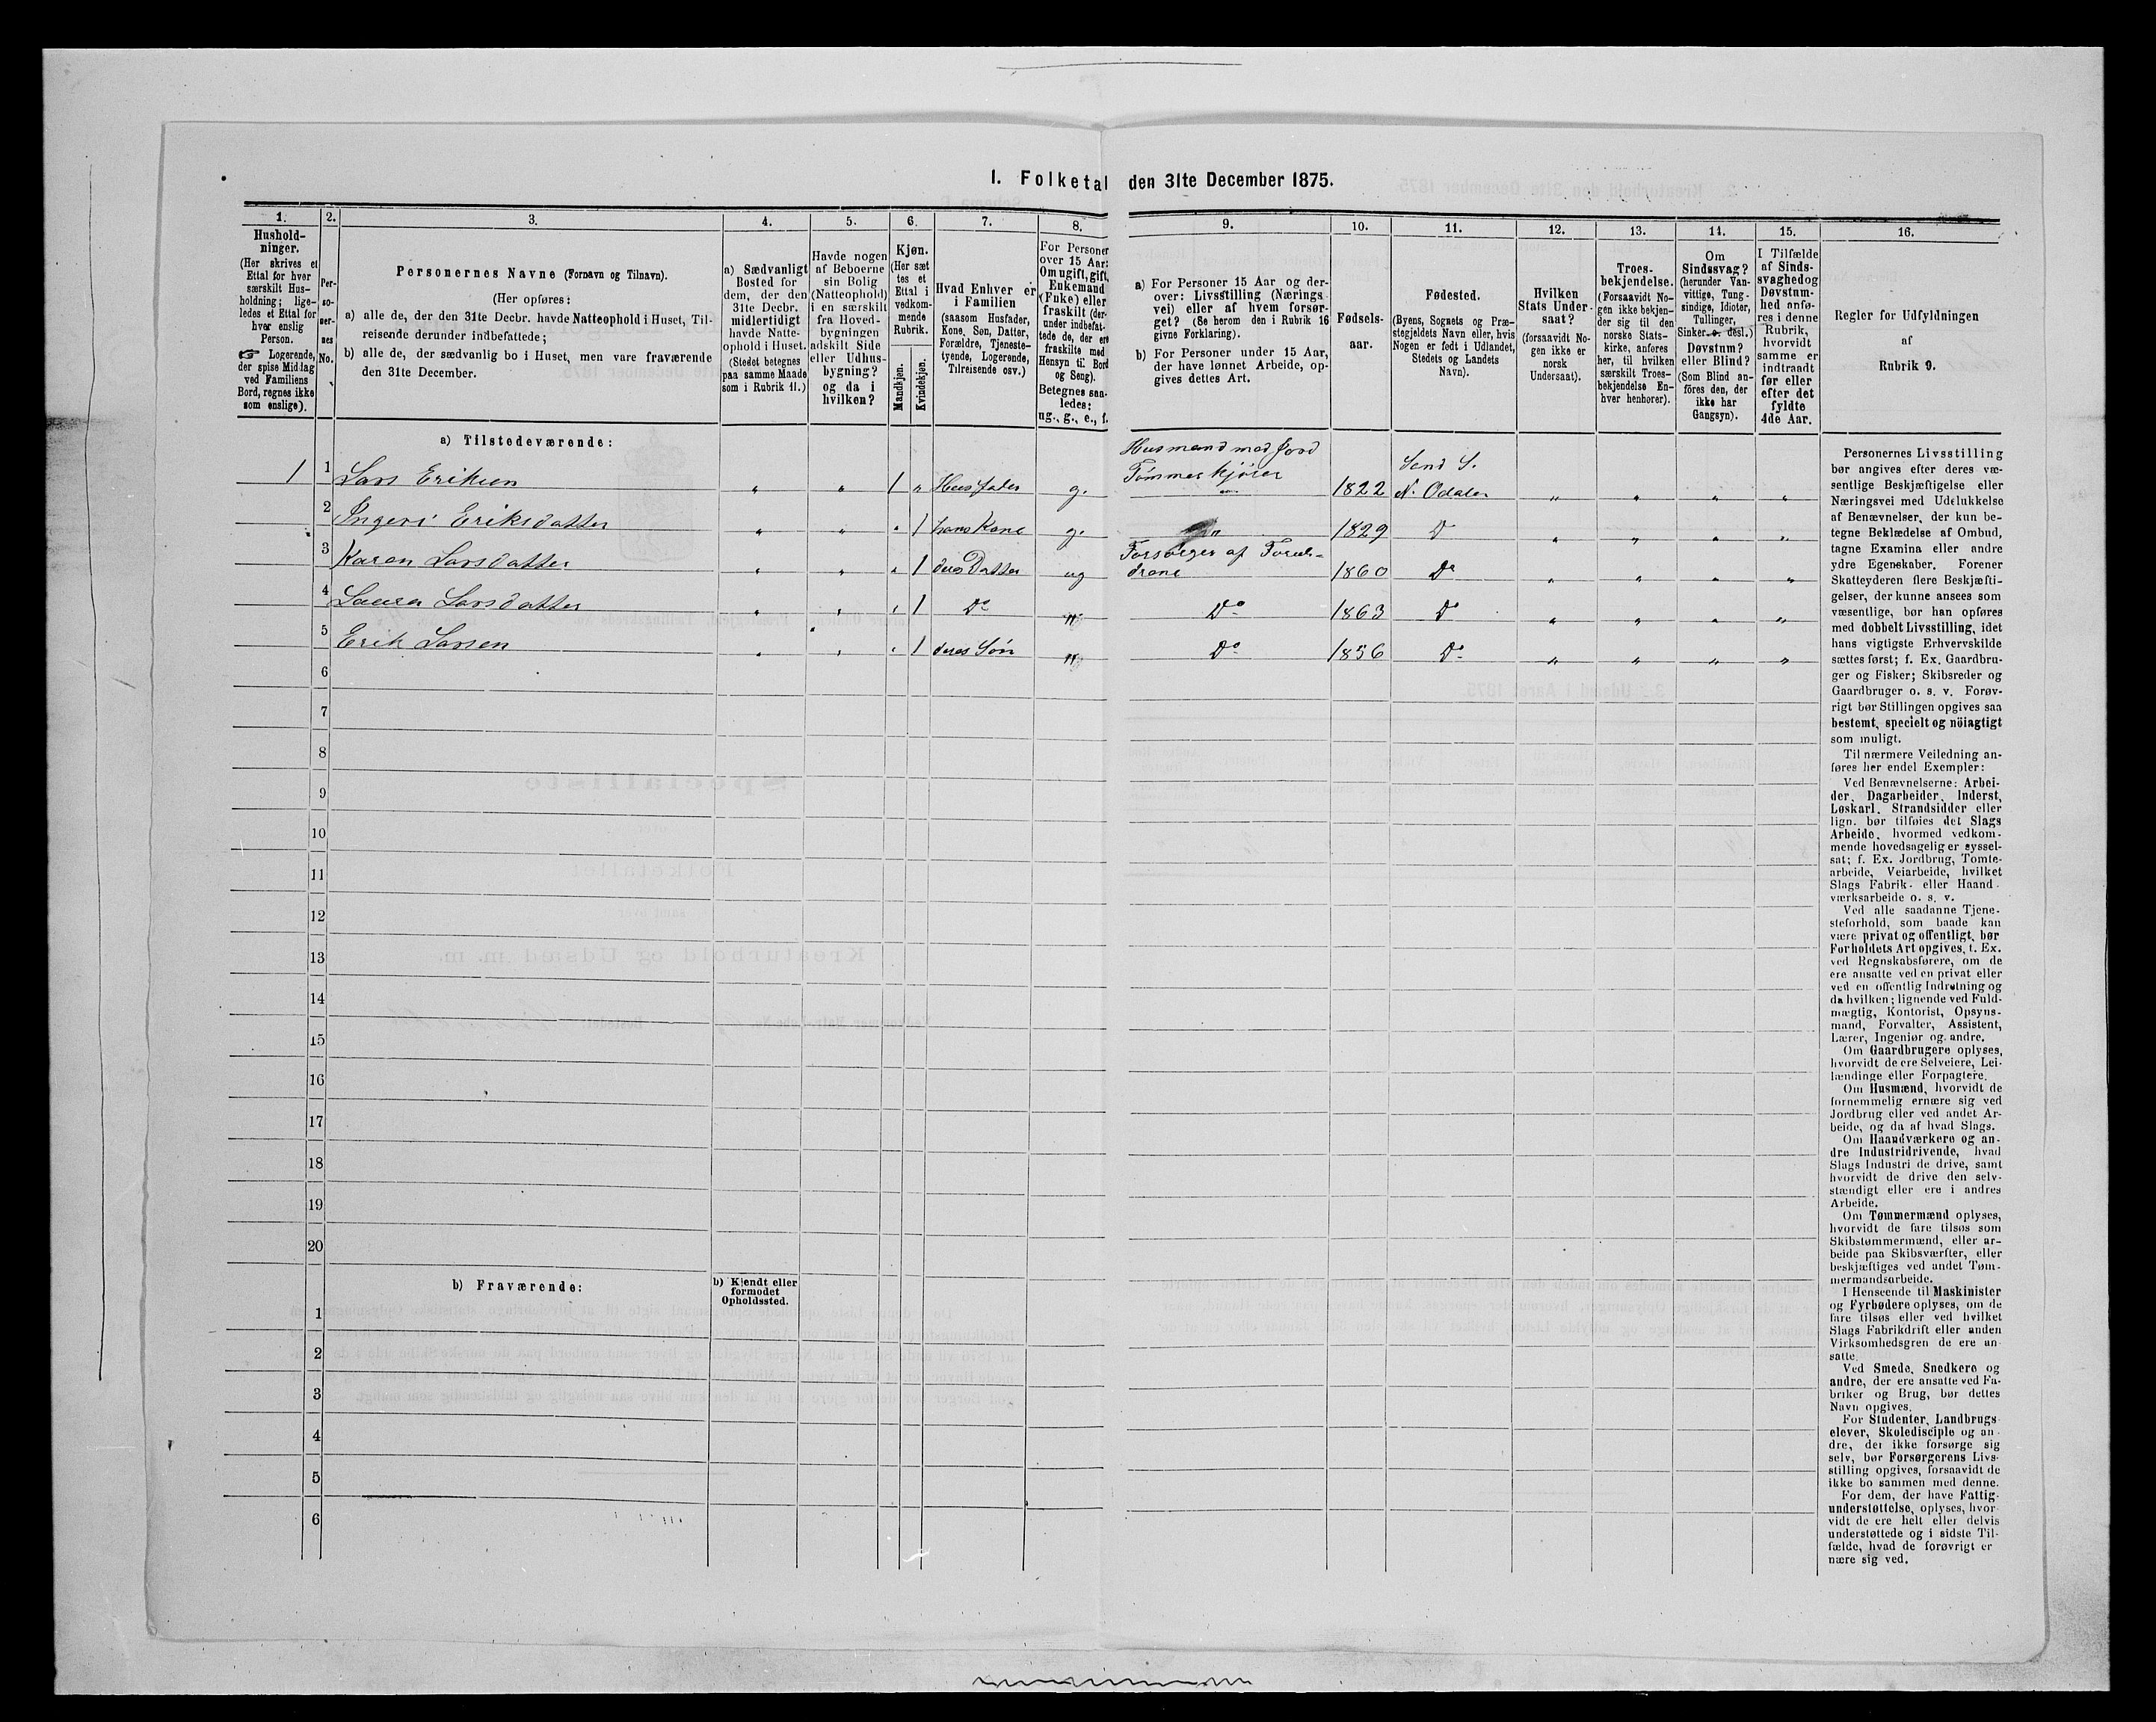 I. Folketal den 31te December 1875.
1.
Hushold-
ninger.
(Her skrives et
Ettal for hver
særskilt Hus-
holdning; lige-
ledes et Ettal for
hver enslig
Person.
☞ Logerende,
der spise Middag
ved Familiens
Bord, regnes ikke
som enslige).
2.
Per-
so-
ner-
nes
No.
3.
Personernes Navne (Fornavn og Tilnavn).
(Her opføres:
a) alle de, der den 31te Decbr. havde Natteophold i Huset, Til-
reisende derunder indbefattede;
b) alle de, der sædvanlig bo i Huset, men vare fraværende
den 31te December.
4.
a) Sædvanligt
Bosted for
dem, der den
31te Decbr.
midlertidigt
havde Natte-
ophold i Huset.
(Stedet betegnes
paa samme Maade
som i Rubrik 11.)
5.
Havde nogen
af Beboerne
sin Bolig
(Natteophold)
i en særskilt
fra Hoved-
bygningen
adskilt Side
eller Udhus-
bygning?
og da i
hvilken?
6.
Kjøn.
(Her sæt
tes et
Ettal i
vedkom-
mende
Rubrik.
Mandkjøn.
Kvindekjøn.
7.
Hvad Enhver er
i Familien
(saasom Husfader,
Kone, Søn, Datter,
Forældre, Tjeneste-
tyende, Logerende,
Tilreisende osv.)
8.
For Personer
over 15 Aar:
Om ugift, gift,
Enkemand
(Enke) eller
fraskilt (der-
under indbefat-
tede de, der ere
fraskilte med
Hensyn til Bord
og Seng).
Betegnes saa-
ledes:
ug., g., e., f.
9.
a) For Personer 15 Aar og der-
over: Livsstilling (Nærings
vei) eller af hvem forsør-
get? (Se herom den i Rubrik 16
givne Forklaring).
b) For Personer under 15 Aar,
der have lønnet Arbeide, op-
gives dettes Art.
10.
Fødsels-
aar.
11.
Fødested.
(Byens, Sognets og Præ-
stegjeldets Navn eller, hvis
Nogen er født i Udlandet,
Stedets og Landets
Navn).
12.
Hvilken
Stats Under-
saat?
(forsaavidt No-
gen ikke er
norsk
Undersaat).
13.
Troes-
bekjendelse.
(Forsaavidt No-
gen ikke bekjen-
der sig til den
norske Stats-
kirke, anføres
her, til hvilken
særskilt Troes-
bekjendelse En-
hver henhører).
14.
Om
Sindssvag?
(herunder Van-
vittige, Tung-
sindige, Idioter,
Tullinger,
Sinker o. desl.)
Døvstum?
eller Blind?
(Som Blind an-
föres den, der
ikke har
Gangsyn).
15.
I Tilfælde
af Sinds-
svaghed og
Døvstum-
hed anfø-
res i denne
Rubrik,
hvorvidt
samme er
indtraadt
før eller
efter det
fyldte
4de Aar.
16.
Regler for Udfyldningen
af
Rubrik 9.
a) Tilstedeværende:
1 1 Lars Eriksen „ „ 1 „ Husfader g. Husmand med Jord Tømmerkjører 1822 Sand S. N. Odalen „ „ „ „
2 Ingeri Eriksdatter „ „ „ 1 hans Kone g. „ 1829 Do „ „ „ „
3 Karen Larsdatter „ „ „ 1 deres Datter ug Forsørges af Foræl-
drene 1860 Do „ „ „ „
4 Laura Larsdatter „ „ „ 1 Do „ Do 1863 Do „ „ „ „
5 Erik Larsen „ „ „ 1 deres Søn „ Do 1856 Do „ „ „ „
6
7
8
9
10
11
12
13
14
15
16
17
18
19
20
b) Fraværende:
b) Kjendt eller
formodet
Opholdssted.
1
2
3
4
5
6
Personernes Livsstilling
bør angives efter deres væ-
sentlige Beskjæftigelse eller
Næringsvei med Udelukkelse
af Benævnelser, der kun be-
tegne Beklædelse af Ombud,
tagne Examina eller andre
ydre Egenskaber. Forener
Skatteyderen flere Beskjæfti-
gelser, der kunne ansees som
væsentlige, bør han opføres
med dobbelt Livsstilling, idet
hans vigtigste Erhvervskilde
sættes først; f. Ex. Gaardbru-
ger og Fisker; Skibsreder og
Gaardbruger o. s. v. Forøv-
rigt bør Stillingen opgives saa
bestemt, specielt og nöiagtigt
som muligt.
Til nærmere Veiledning an-
føres her endel Exempler:
Ved Benævnelserne: Arbei-
der, Dagarbeider, Inderst,
Løskarl, Strandsidder eller
lign. bør tilføies det Slags
Arbeide, hvormed vedkom-
mende hovedsagelig er syssel-
sat; f. Ex. Jordbrug, Tomte-
arbeide, Veiarbeide, hvilket
Slags Fabrik- eller Haand-
værksarbeide o. s. v.
Ved alle saadanne Tjene-
steforhold, som baade kan
være privat og offentligt, bør
Forholdets Art opgives, f. Ex.
ved Regnskabsførere, om de
ere ansatte ved en privat eller
ved en offentlig Indretning og
da hvilken; lignende ved Fuld-
mægtig, Kontorist, Opsyns-
mand, Forvalter, Assistent,
Lærer, Ingeniør og andre.
Om Gaardbrugere oplyses,
hvorvidt de ere Selveiere, Lei-
lændinge eller Forpagtere.
Om Husmænd, hvorvidt de
fornemmelig ernære sig ved
Jordbrug eller ved andet Ar-
beide, og da af hvad Slags.
Om Haandværkere og an-
dre Industridrivende, hvad
Slags Industri de drive, samt
hvorvidt de drive den selv-
stændigt eller ere i andres
Arbeide.
Om Tømmermænd oplyses,
hvorvidt de fare tilsøs som
Skibstømmermænd, eller ar-
beide paa Skibsværfter, eller
beskjæftiges ved andet Tøm-
mermandsarbeide.
I Henseende til Maskinister
og Fyrbødere oplyses, om de
fare tilsøs eller ved hvilket
Slags Fabrikdrift eller anden
Virksomhedsgren de ere an-
satte.
Ved Smede, Snedkere og
andre, der ere ansatte ved Fa-
briker og Brug, bør dettes
Navn opgives.
For Studenter, Landbrugs-
elever, Skoledisciple og an-
dre, der ikke forsørge sig
selv, bør Forsørgerens Livs-
stilling opgives, forsaavidt de
ikke bo sammen med denne.
For dem, der have Fattig-
understøttelse, oplyses, hvor-
vidt de ere helt eller delvis
understøttede og i sidste Til-
fælde, hvad de forøvrigt er
nære sig ved.